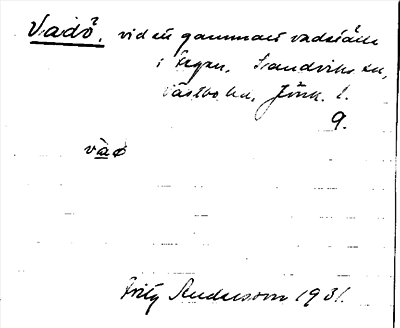 Vadö, vid en gammalt vadställe
i Fegen, Sandviks sn,
Västbo hd, Jönk. l.
9.
vàø
Fritz Andersson 1931.